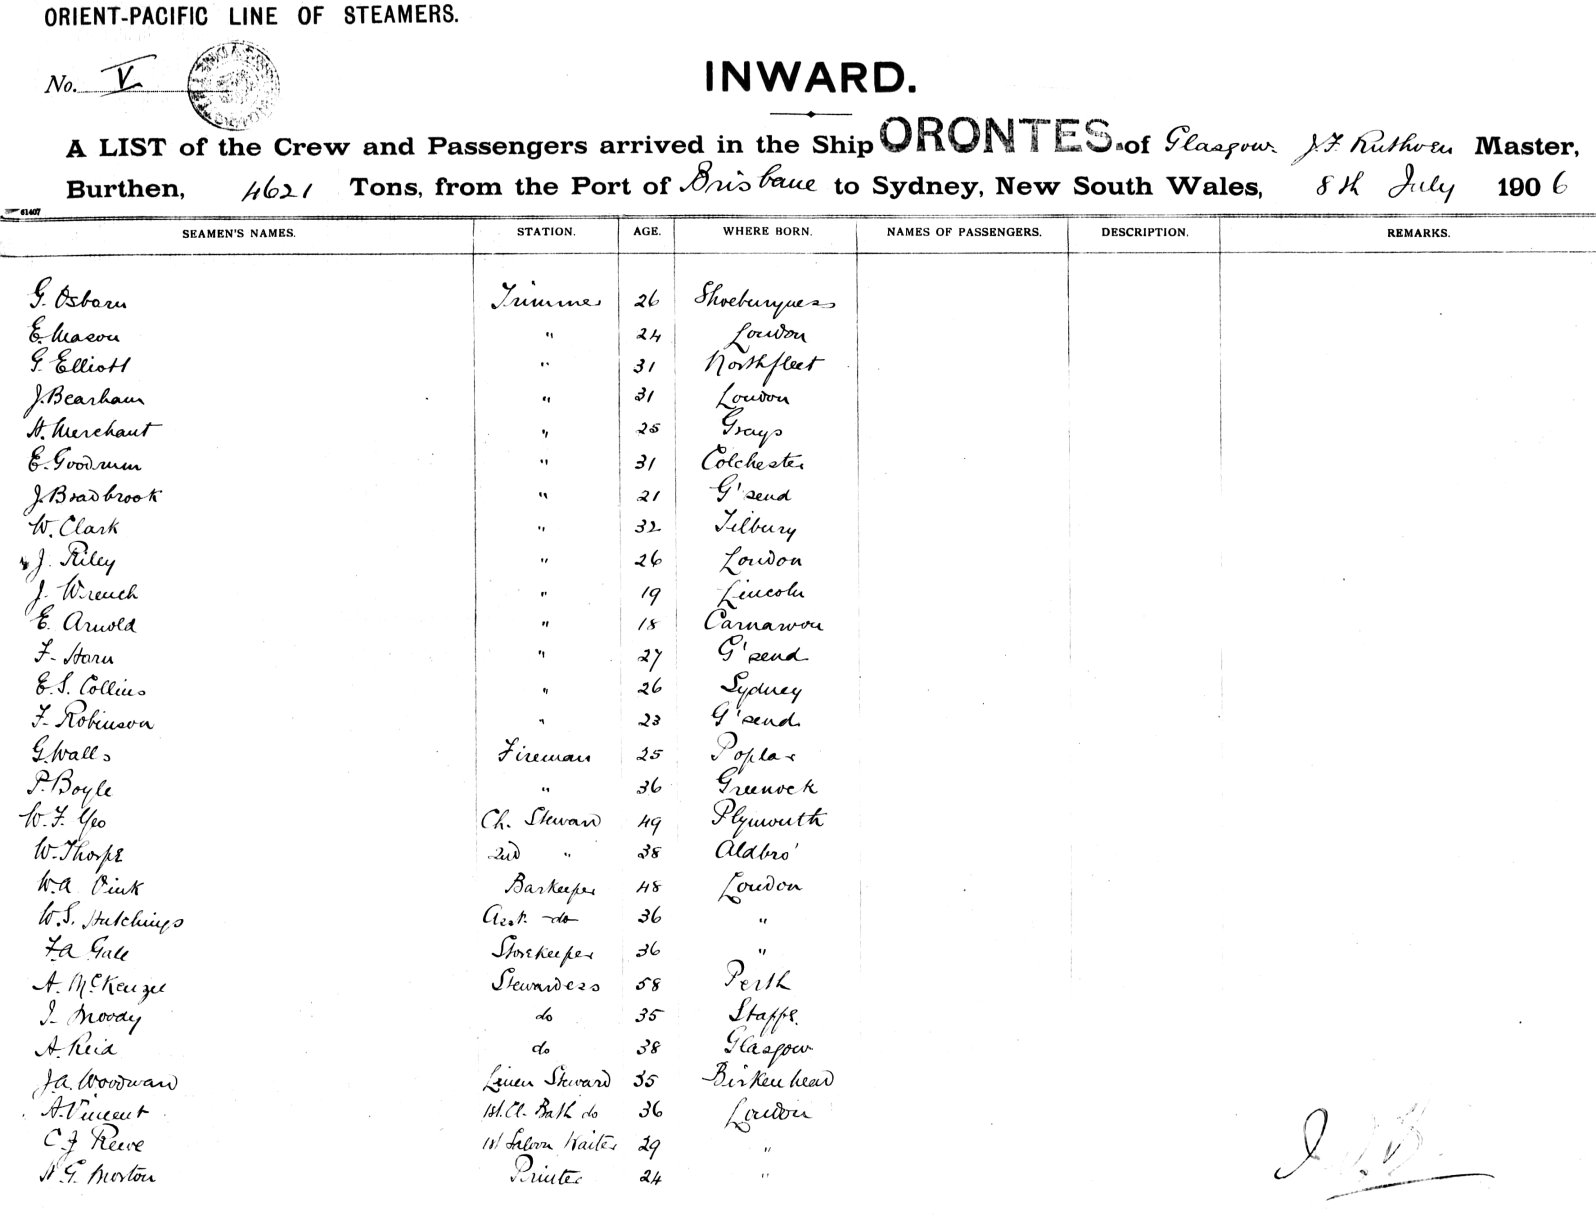 ORIENT-PACIFIC LINE OF STEAMERS.
No. V
INWARD.
A LIST of the Crew and Passengers arrived in the Ship ORONTES. of Glasgow J. F. Ruthven Master,
Burthen, 4621 Tons, from the Port of Brisbane to Sydney, New South Wales, 8th July 1906
61407
SEAMEN'S NAMES. STATION. AGE. WHERE BORN. NAMES OF PASSENGERS. DESCRIPTION. REMARKS.
G. Osborn Trimmer 26 Shoeburyness
E. Mason " 24 London
G. Elliott " 31 Northfleet
J. Bearham " 31 London
H. Merchant " 25 Grays
E. Goodrum " 31 Colchester
J. Bradbrook " 21 G'send
W. Clark " 32 Tilbury
J. Riley " 26 London
J. Wrench " 19 Lincoln
E. Arnold " 18 Carnarvon
F. Horn " 27 G'send
E. S. Collins " 26 Sydney
F. Robinson " 23 G'send
G. Walls Fireman 25 Poplar
P. Boyle " 36 Greenock
W. F. Yeo Ch. Steward 49 Plymouth
W. Thorpe 2nd " 38 Aldbro'
W. A. Vink Barkeeper 48 London
W. S. Hutchings Asst. do 36 "
F. A. Gale Storekeeper 36 "
A. McKenzie Stewardess 58 Perth
I. Moody do 35 Staffs.
A. Reid do 38 Glasgow
J. A. Woodward Linen Steward 35 Birkenhead
A. Vincent 1st. Cl. Bath do 36 London
C. J. Reeve 1st Saloon Waiter 29 "
H. G. Morton Printer 24 "